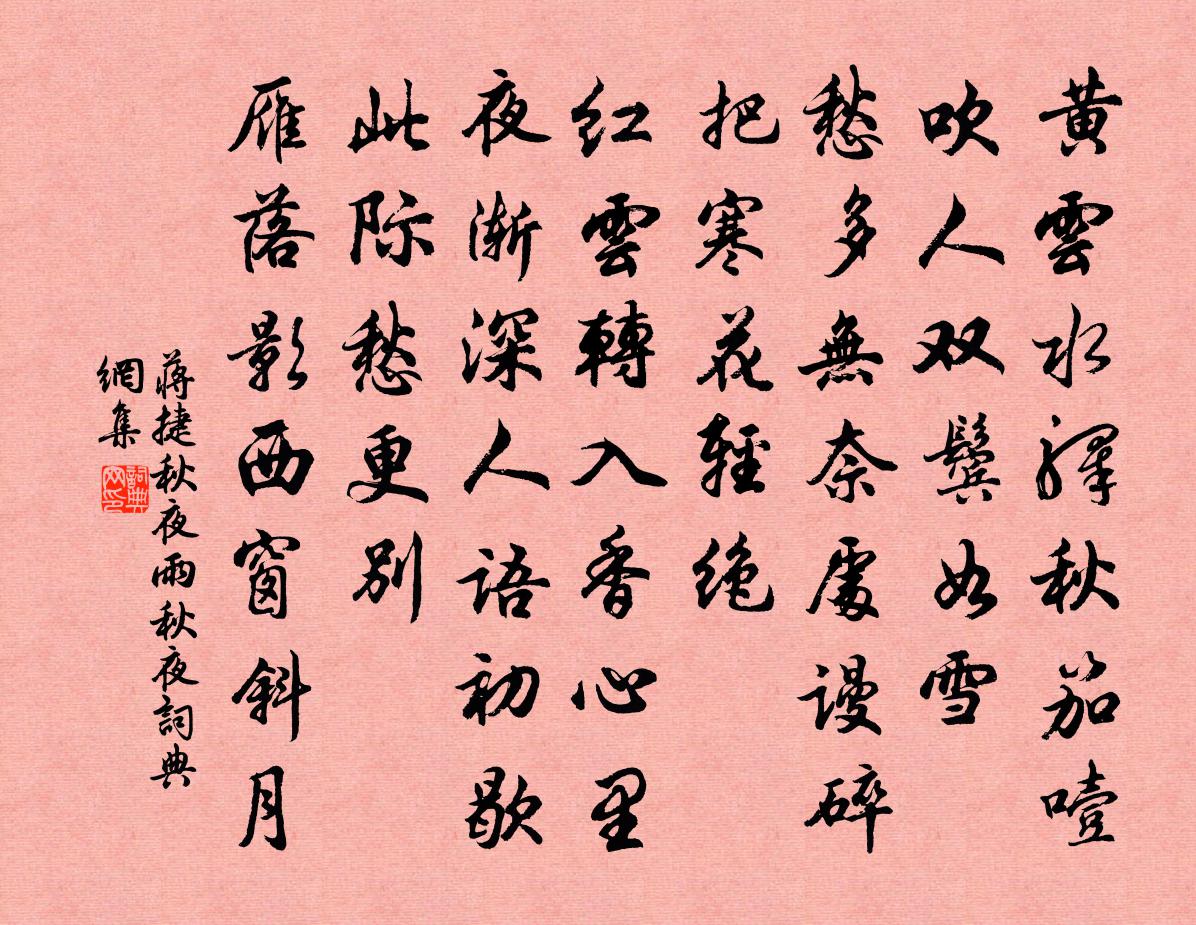 黄雲水驛秋笳噎
吹人双鬓如雪
愁多無奈處谩碎
把寒花輕绝
红雲轉入香心里
夜渐深人語初歇
此际愁更别
雁落影西窗斜月
蒋捷秋夜雨秋夜詞典
網集
詞典